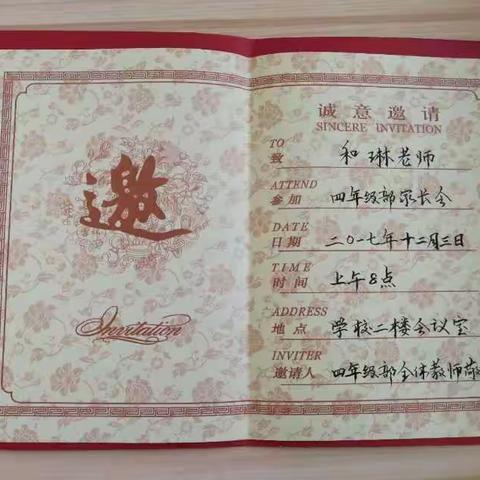 邀
Invitation
诚意邀请
SINCERE INVITATION
TO
致 和琳老师
ATTEND
参加 四年级部家长会
DATE
日期 二〇一七年十二月三日
TIME
时间 上午8点
ADDRESS
地点 学校二楼会议室
INVITER
邀请人 四年级部全体教师敬